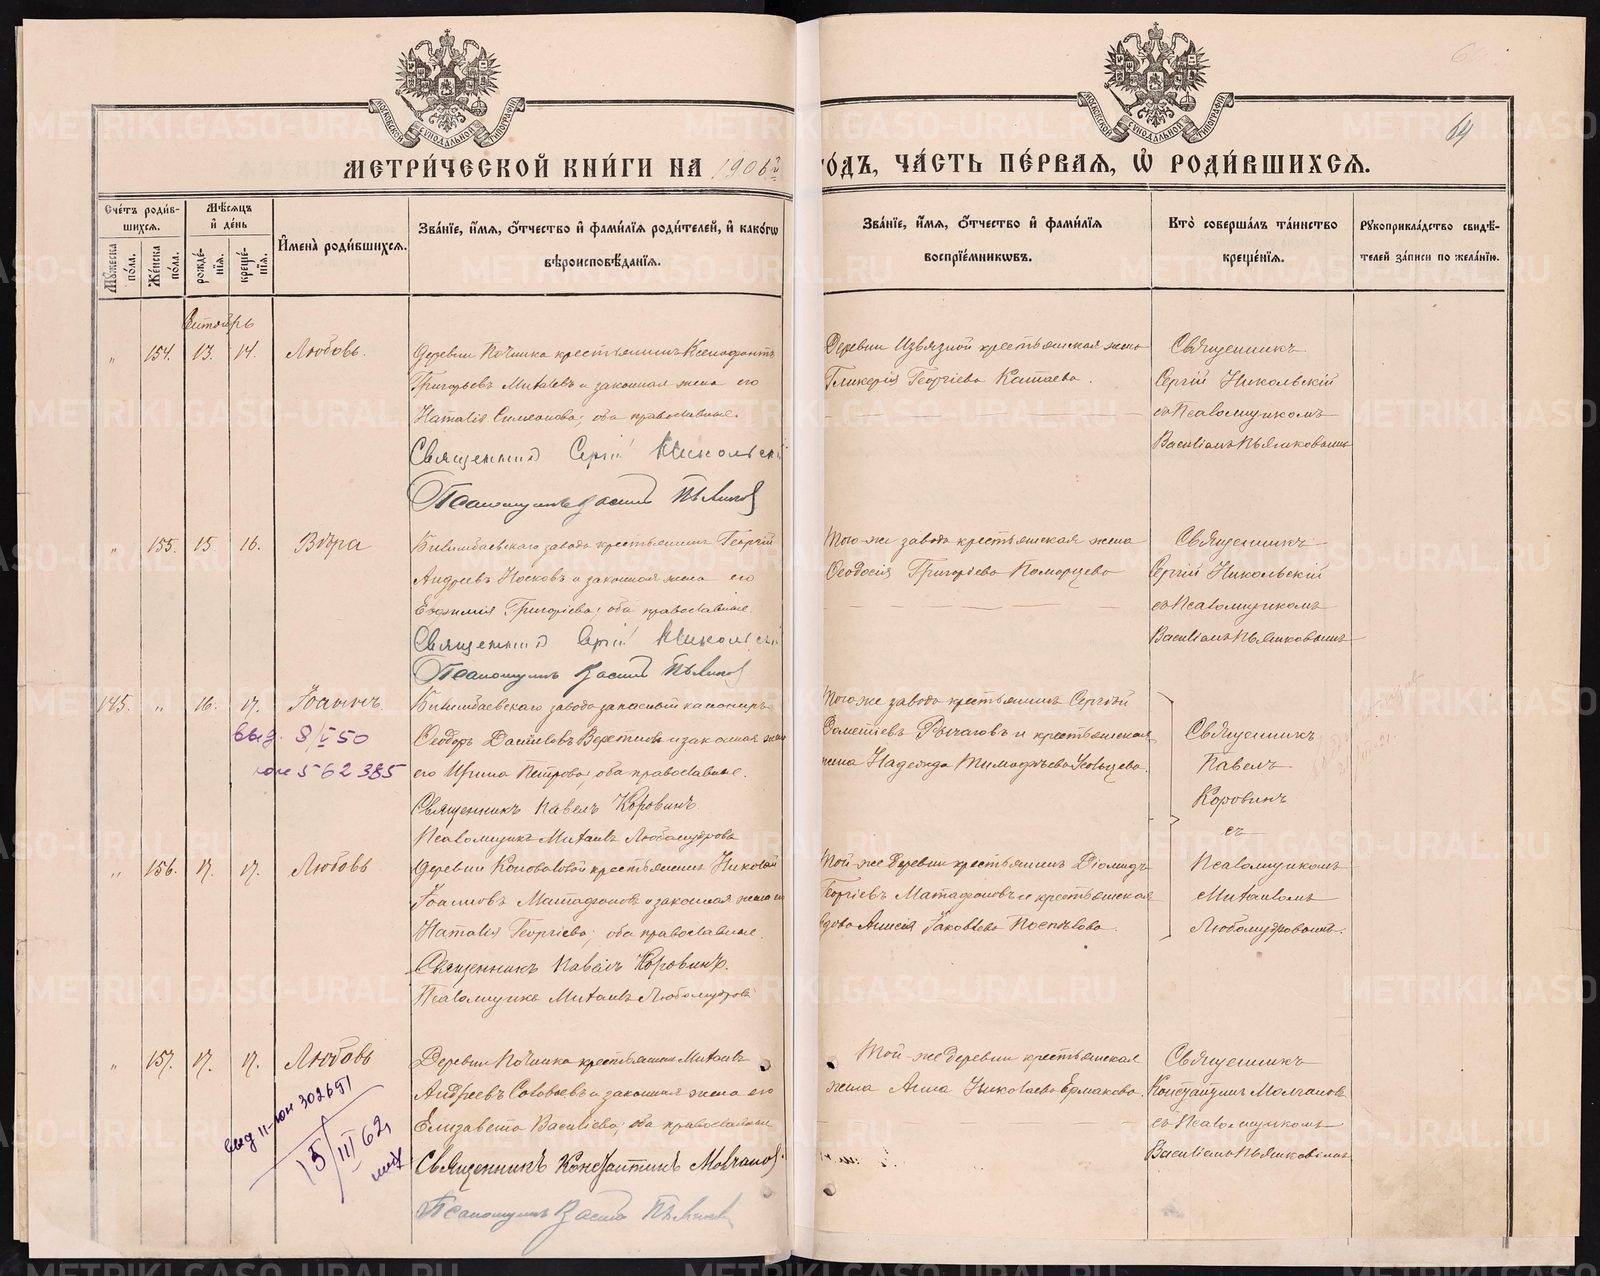 64
МОСКОВСКОЙ СѴНОДАЛЬНОЙ ТИПОГРАФІИ
МОСКОВСКОЙ СѴНОДАЛЬНОЙ ТИПОГРАФІИ
МЕТРИ́ЧЕСКОЙ КНИ́ГИ НА 1906й
ГО́ДЪ, ЧА́СТЬ ПЕ́РВАЯ, Ѡ҆ РОДИ́ВШИХСЯ.
Сче́тъ роди́в-
шихся.
Мꙋ́жеска по́ла.
Же́нска по́ла.
Мѣ́сяцъ
и҆ де́нь
рожде́-
нїя.
креще́-
нїя.
И҆мена̀ роди́вшихся.
Зва́нїе, и҆́мя, ѻ҆́тчество и҆ фами́лїя роди́телей, и҆ како́гѡ
вѣроисповѣ́данїя.
Зва́нїе, и҆́мя, ѻ҆́тчество и҆ фами́лїя
воспрїе́мникѡвъ.
Кто̀ соверша́лъ та́инство
креще́нїя.
Рꙋкоприкла́дство свидѣ́-
телей за́писи по жела́нїю.
Октябрь
" 154. 13. 14. Любовь.
Деревни Починка крестьянинъ Ксенофонтъ
Григорьевъ Михалевъ и законная жена его
Наталія Симеонова; оба православные.
Священникъ Сергій Никольскій
Псаломщикъ Василій Пьянковъ
Деревни Извязной крестьянская жена
Гликерія Георгіева Катаева.
Священникъ
Сергій Никольскій
съ Псаломщикомъ
Василіемъ Пьянковымъ
" 155. 15. 16. Вѣра
Билимбаевскаго завода крестьянинъ Георгій
Андреевъ Носковъ и законная жена его
Евфимія Григоріева; оба православные.
Священникъ Сергій Никольскій
Псаломщикъ Василій Пьянковъ
Того-же завода крестьянская жена
Ѳеодосія Григоріева Поморцева
Священникъ
Сергій Никольскій
съ Псаломщикомъ
Василіемъ Пьянковымъ
145. " 16. 17. Іоаннъ.
выд. 8/V 50
юле 562385
Билимбаевскаго завода запасный канониръ
Ѳеодоръ Даниловъ Веретновъ и законная жена
его Ирина Петрова; оба православные.
Священникъ Павелъ Коровинъ.
Псаломщикъ Михаилъ Любомудровъ
Того-же завода крестьянинъ Сергій
Рычаговъ и крестьянская
жена Надежда Тимофѣева Усольцева.
Священникъ
Павелъ
Коровинъ
съ
" 156. 17. 17. Любовь
Деревни Коноваловой крестьянинъ Николай
Іоанновъ Матафоновъ и законная жена его
Наталія Георгіева; оба православные.
Священникъ Павелъ Коровинъ.
Псаломщикъ Михаилъ Любомудровъ
Той-же деревни крестьянинъ Діомидъ
Георгіевъ Матафоновъ и крестьянская
вдова Анисія Іаковлева Поспѣлова.
Псаломщикомъ
Михаиломъ
Любомудровымъ.
" 157. 17. 17. Любовь
выд II-юи 302691
15/III 62
Деревни Починка крестьянинъ Михаилъ
Андреевъ Соловьевъ и законная жена его
Елизавета Василіева; оба православные
Священникъ Константинъ Молчановъ.
Псаломщикъ Василій Пьянковъ
Той-же деревни крестьянская
жена Анна Николаева Ермакова.
Священникъ
Константинъ Молчановъ
съ Псаломщикомъ
Василіемъ Пьянковымъ
METRIKI.GASO-URAL.RU